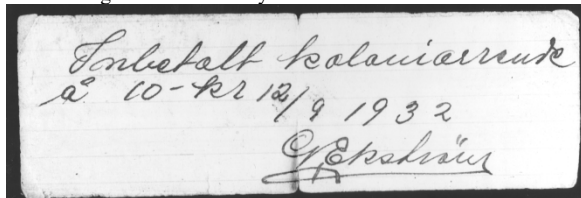 Inbetalt koloniarrende
å 10-kr 12/9 1932
G Ekström